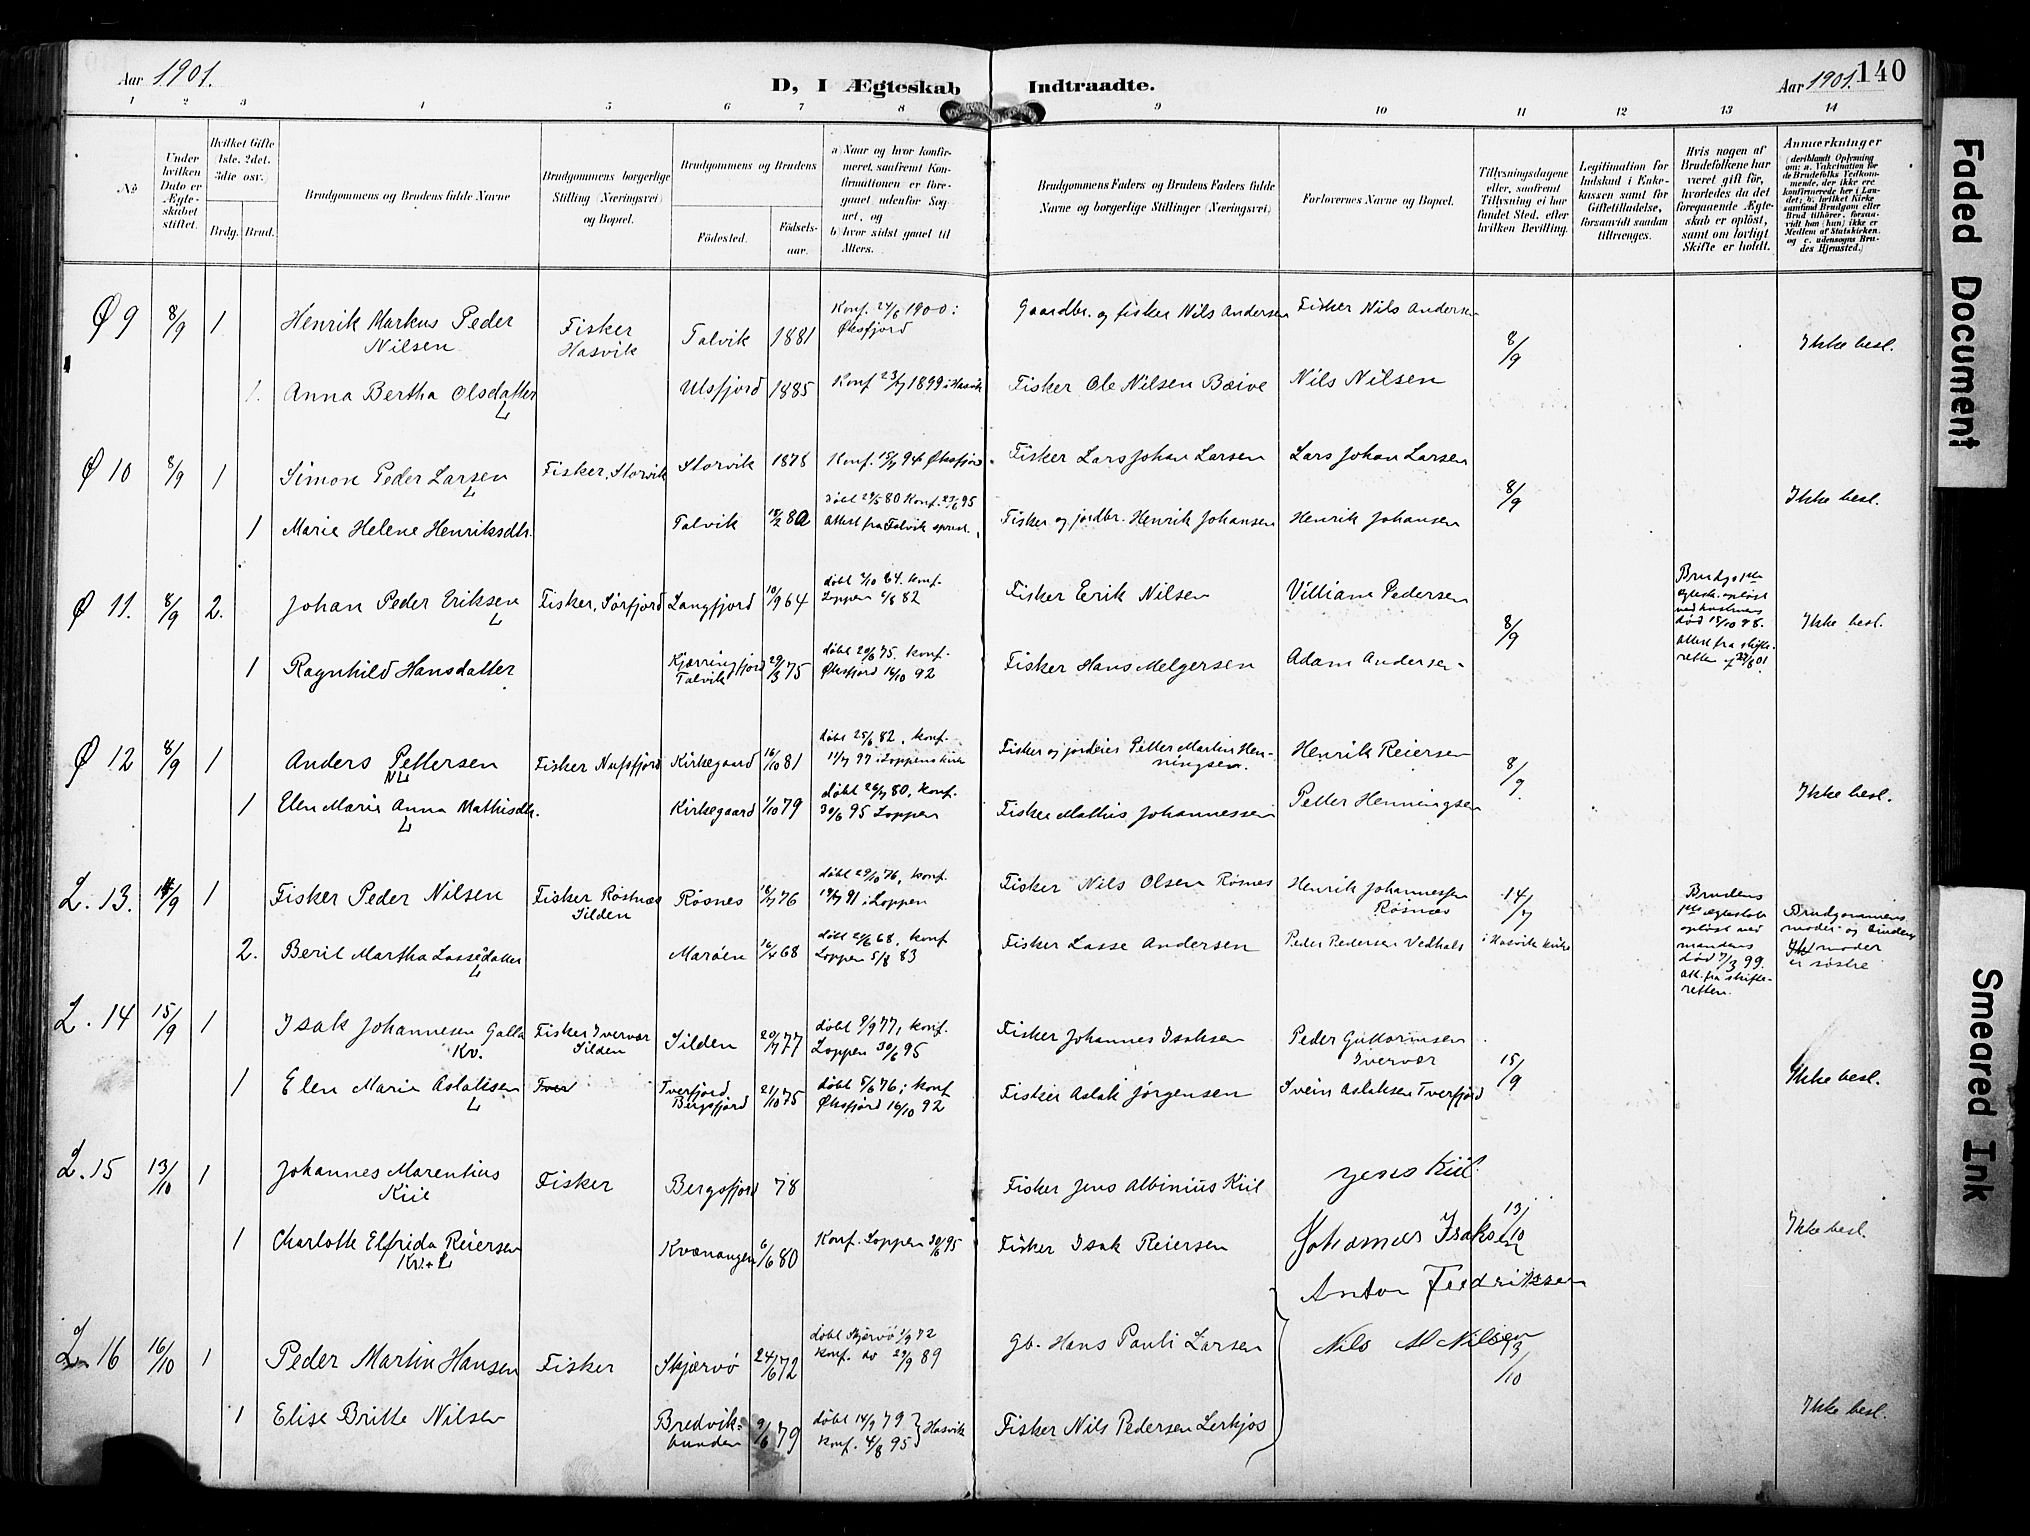 Aar 1901.
D, I Ægteskab Indtraadte.
Aar 1901. 140
1 2 3 4 5 6 7 8 9 10 11 12 13 14
No
Under hvilken Dato er Ægteskabet stiftet.
Hvilket Gifte (1ste, 2det, 3die osv.)
Brdg. Brud.
Brudgommens og Brudens fulde Navne
Brudgommens borgerlige Stilling (Næringsvei) og Bopæl.
Brudgommens og Brudens
Fødested. Fødselsaar.
a) Naar og hvor konfirmeret, saafremt Konfirmationen er foregaaet udenfor Sognet, og
b) hvor sidst gaaet til Alters.
Brudgommens Faders og Brudens Faders fulde Navne og borgerlige Stillinger (Næringsvei)
Forlovernes Navne og Bopæl.
Tillysningsdagene eller, saafremt Tillysning ei har fundet Sted, efter hvilken Bevilling.
Legitimation for Indskud i Enkekassen samt for Giftetilladelse, forsaavidt saadan tiltrænges.
Hvis nogen af Brudefolkene har været gift før, hvorledes da det foregaaende Ægteskab er opløst, samt om lovligt Skifte er holdt.
Anmærkninger
(deriblandt Oplysning om: a. Vakcination for de Brudefolks Vedkommende, der ikke ere konfirmerede her i Landet; b. hvilket Kirkesamfund Brudgom eller Brud tilhører, forsaavidt han (hun) ikke er Medlem af Statskirken, og c. udensogns Brudes Hjemsted.)
Ø 9 8/9 1 Henrik Markus Peder Nilsen Fisker Hasvik Talvik 1881 Konf. 24/6 1900 i Øksfjord Gaardbr. og fisker Nils Andersen Fisker Nils Andersen 8/9 Ikke besl.
1. Anna Bertha Olsdatter L Ulsfjord 1885 Konf 23/7 1899 i Hasvik Fisker Ole Nilsen Bæive Nils Nilsen
Ø 10 8/9 1 Simon Peder Larsen L Fisker, Storvik Storvik 1878 Konf. 15/7 94 Øksfjord Fisker Lars Johan Larsen Lars Johan Larsen 8/9 Ikke besl.
1 Marie Helene Henriksdtr. Talvik 18/2 80 døbt 29/5 80 Konf. 23/6 95 Attest fra Talvik Fisker og jordbr. Henrik Johansen Henrik Johansen
Ø 11. 8/9 2. Johan Peder Eriksen L Fisker, Sørfjord Langfjord 10/9 64 døbt 2/10 64. konf. Loppen 6/8 82 Fisker Erik Nilsen Villiam Pedersen 8/9 Brudgo 1ste egtesk. opløst ved kustruens død 15/10 98. Attest fra skifteretten 23/8 01. Ikke besl.
1 Ragnhild Hansdatter Kjærringfjord Talvik 29/3 75 døbt 20/6 75, konf. Øksfjord 16/10 92 Fisker Hans Melgersen Adam Andersen
Ø 12 8/9 1 Anders Pettersen NL Fisker Nufsfjord Kirkegaard 16/10 81 døbt 25/6 82, konf. 11/7 97 i Loppens kirke Fisker og jordeier Petter Martin Henningsen. Henrik Reiersen 8/9. Ikke besl.
1 Elen Marie Anna Mathisdtr. L Kirkegaard 1/10 79 døbt 26/7 80, konf. 30/6 95 Loppen Fisker Mathis Johannessen Petter Henningsen
L. 13. 15/9 1 Fisker Peder Nilsen Fisker Røsnes Silden Røsnes 18/7 76 døbt 29/10 76, konf. 19/7 91 i Loppen Fisker Nils Olsen Røsnes Henrik Johannessen Røsnæs 14/7 i Hasvik kirke Brudens 1ste ægteskab opløst ved mandens død 7/3 99. Att. fra skifteretten. Brudgommens moder og brudens moder er søstre
2. Beril Martha Lassedatter L Marøen 16/4 68 døbt 21/6 68, konf Loppen 5/8 83 Fisker Lasse Andersen Peder Pedersen Vedhals
L. 14 15/9 1 Isak Johannesen Galla Kv. Fisker Ivervær Silden Silden 20/7 77 døbt 9/9 77, konf. Loppen 30/6 95 Fisker Johannes Isaksen Peder Guttormsen Ivervær 15/9 Ikke besl.
1 Elen Marie Aslaksen L Tver Tverfjord Bergsfjord 21/10 75 døbt 5/6 76; konf Øksfjord 16/10 92 Fisker Aslak Jørgensen Svein Aslaksen Tverfjord
L. 15 13/10 1 Johannes Marentius Kiil Fisker Bergsfjord 78 Fisker Jens Albinius Kiil Jens Kiil 13/10 Ikke besl.
1 Charlotte Elfrida Reiersen Kv. + L Kvænangen 6/6 80 Konf. Loppen 30/6 95 Fisker Isak Reiersen Johannes Isaksen
Anton Fredriksen
L 16 16/10 1 Peder Martin Hansen Fisker Skjærvø 24/6 72 døbt Skjervø 1/9 72 konf. do 29/9 89 Gb. Hans Pauli Larsen Nils M Nilsen 13/10 Ikke besl.
1 Elise Britte Nilsen Bredvikbunden 9/6 79 døbt 14/9 79 konf. 4/8 95 Hasvik Fisker Nils Pedersen Lerkjos
Faded Document
Smeared Ink